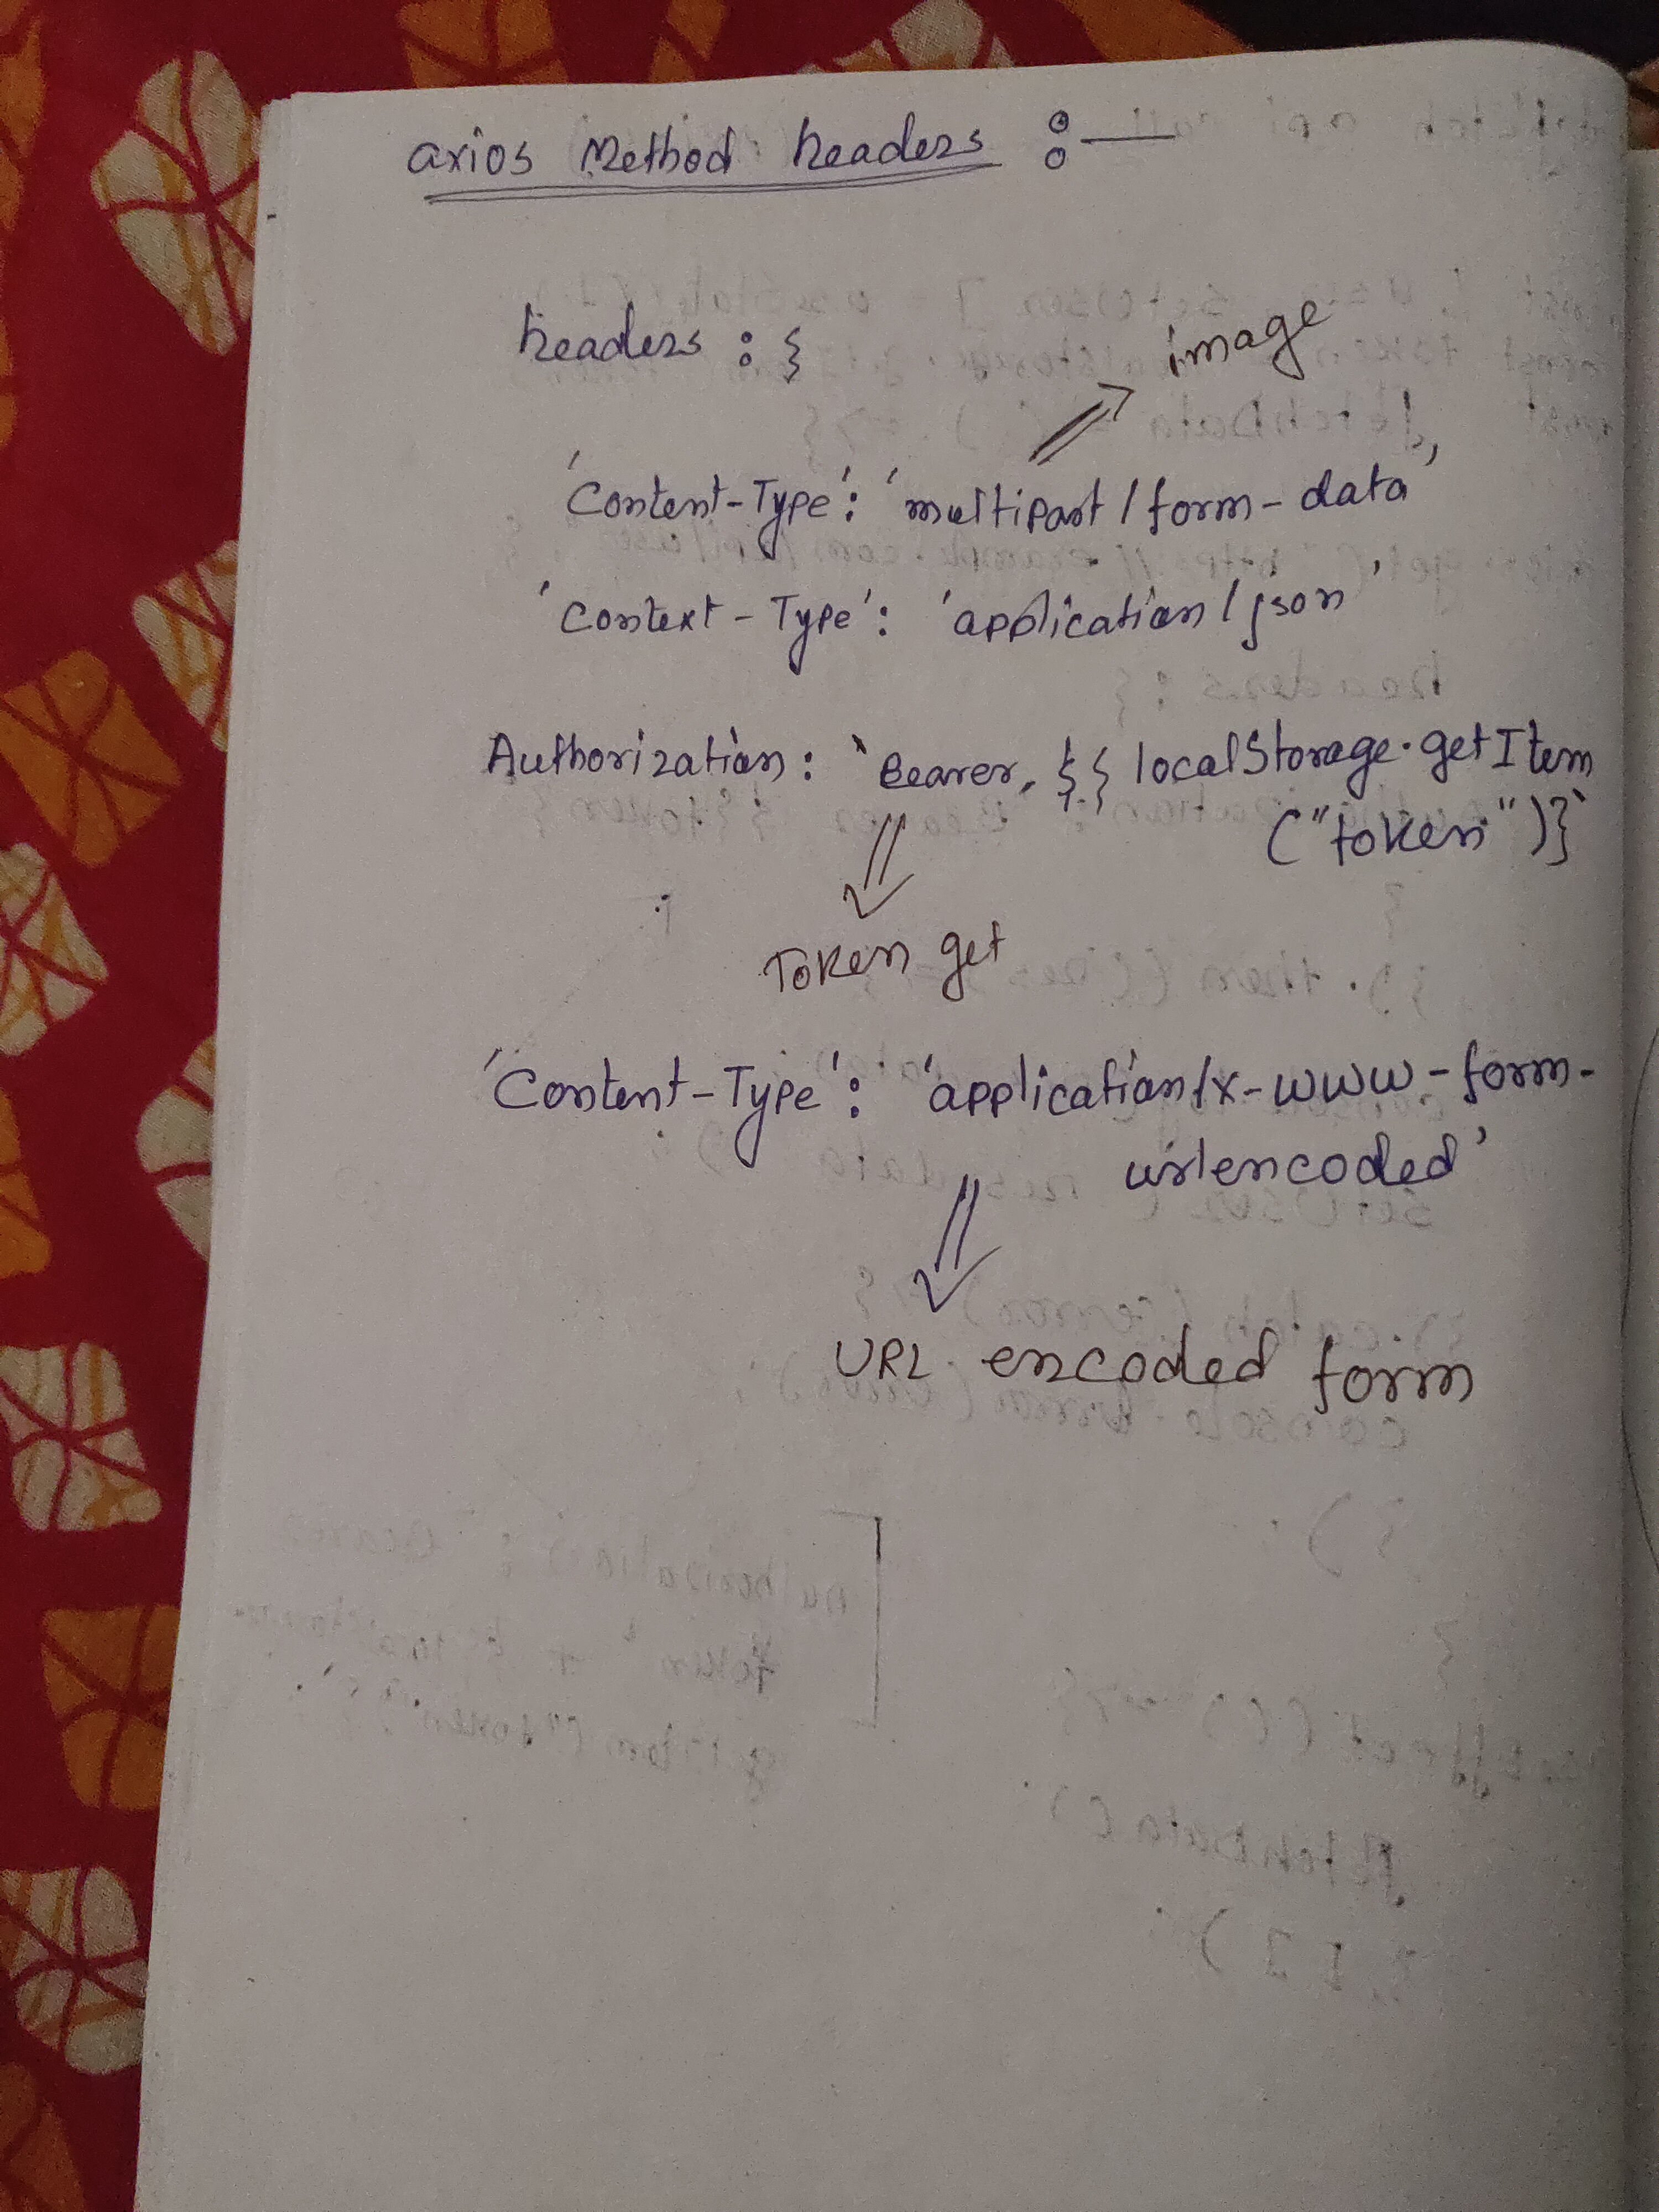 axios Method headers :—
headers : {
image
'Content-Type': 'multipart/form-data',
'Context-Type': 'application/json'
Authorization: `Bearer, ${ localStorage.getItem
("token")}`
Token get
'Content-Type': 'application/x-www-form-
urlencoded'
URL encoded form